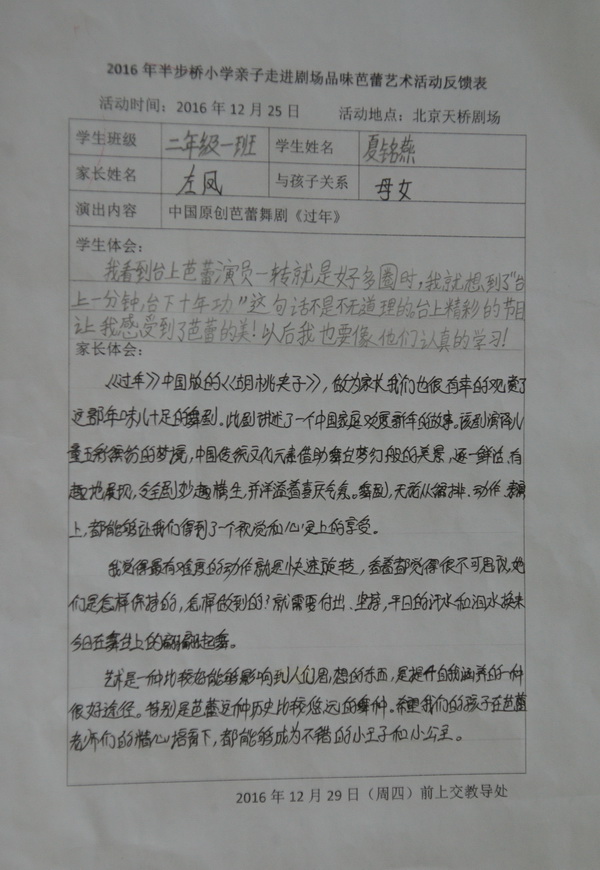 2016年半步桥小学亲子走进剧场品味芭蕾艺术活动反馈表
活动时间：2016年12月25日 活动地点：北京天桥剧场
学生班级 二年级一班 学生姓名 夏铭燕
家长姓名 左凤 与孩子关系 母女
演出内容 中国原创芭蕾舞剧《过年》
学生体会：
我看到台上芭蕾演员一转就是好多圈时，我就想到了"台
上一分钟，台下十年功"这句话不是不无道理的。台上精彩的节目
让我感受到了芭蕾的美！以后我也要像他们认真的学习！
家长体会：
《过年》中国版的《胡桃夹子》，做为家长我们也很有幸的观赏了
这部年味儿十足的舞剧。此剧讲述了一个中国家庭欢度新年的故事。该剧演译儿
童五彩缤纷的梦境，中国传统文化元素借助舞台梦幻般的美景，逐一鲜活、有
趣地展现，令全剧妙趣横生，并洋溢着喜庆气氛。舞剧，无论从编排、动作、表演
上，都能够让我们得到了一个视觉和心灵上的享受。
我觉得最有难度的动作就是快速旋转，看着都觉得很不可思议，她
们是怎样保持的，怎样做到的？就需要付出、坚持，平日的汗水和泪水换来
今日在舞台上的翩翩起舞。
艺术是一种比较好能够影响到人们思想的东西，是提升自我涵养的一种
很好途径。特别是芭蕾这种历史比较悠远的舞种。希望我们的孩子在芭蕾
老师们的精心培育下，都能够成为不错的小王子和小公主。
2016年12月29日（周四）前上交教导处